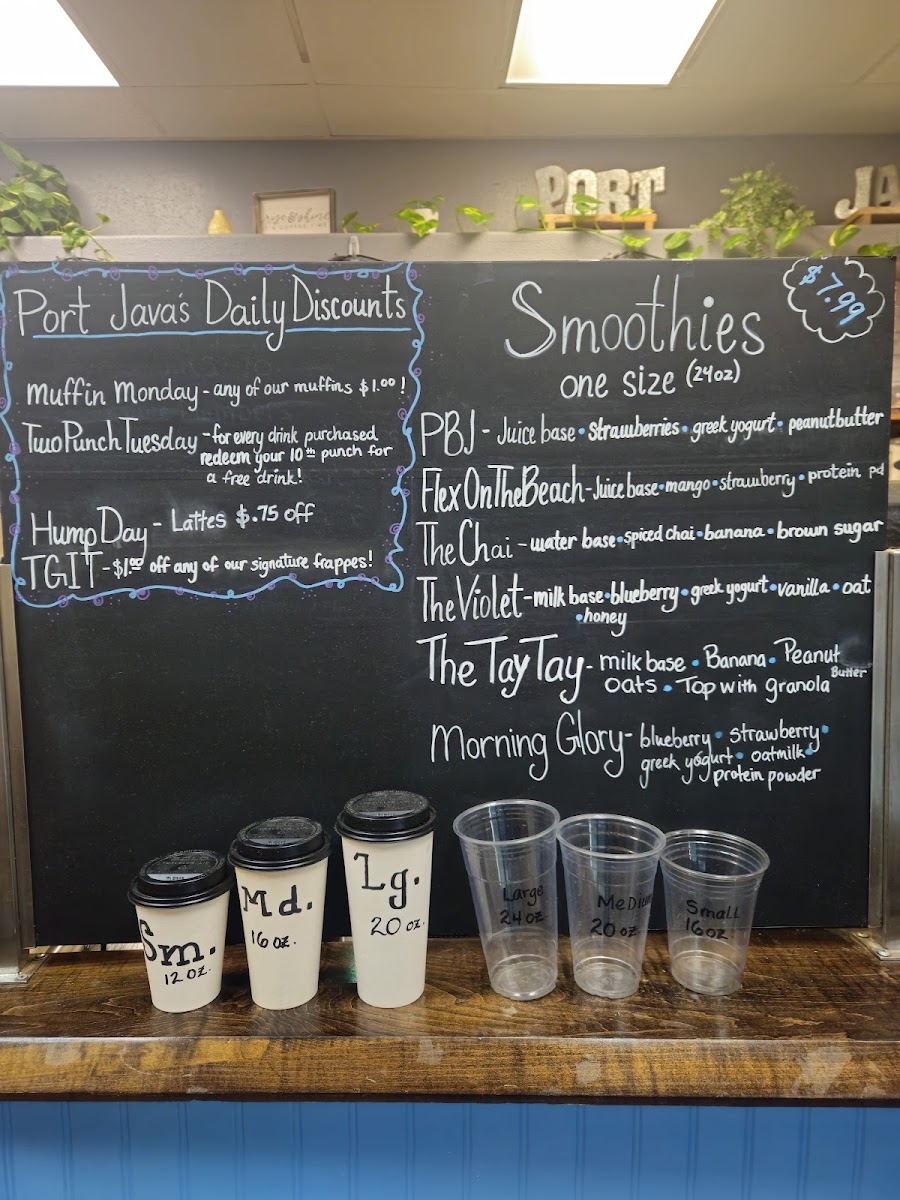 rise & shine
PORT
JA
Port Java's Daily Discounts
Muffin Monday - any of our muffins $1.00!
Two Punch Tuesday - for every drink purchased
redeem your 10th punch for
a free drink!
Hump Day - Lattes $.75 off
TGIT - $1.00 off any of our signature frappes!
$7.99
Smoothies
one size (24oz)
PBJ - Juice base • strawberries • greek yogurt • peanutbutter
Flex On The Beach - Juice base • mango • strawberry • protein pd
The Chai - water base • spiced chai • banana • brown sugar
The Violet - milk base • blueberry • greek yogurt • vanilla • oat
• honey
The Tay Tay - milk base • Banana • Peanut
Butter
oats • Top with granola
Morning Glory - blueberry • strawberry •
greek yogurt • oatmilk •
protein powder
Sm.
12 oz.
Md.
16 oz.
Lg.
20 oz.
Large
24 oz
Medium
20 oz
Small
16 oz